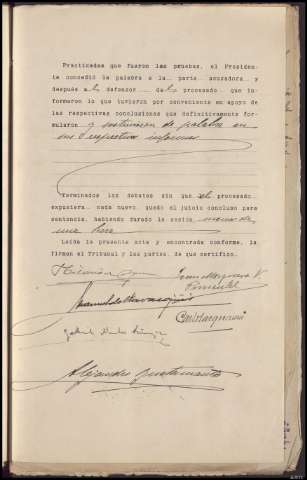 Practicadas que fueron las pruebas, el Presiden-
te concedió la palabra a la parte acusadora y
después al defensor del procesado que in-
formaron lo que tuvieron por conveniente en apoyo de
las respectivas conclusiones que definitivamente for-
mularon y sostuvieron de palabra en
sus respectivos informes
Terminados los debates sin que el procesado
expusiera nada nuevo, quedó el juicio concluso para
sentencia, habiendo durado la sesión menos de
una hora
Leída la presente acta y encontrada conforme, la
firman el Tribunal y las partes, de que certifico.
Pimentel
Alejandro Bustamante